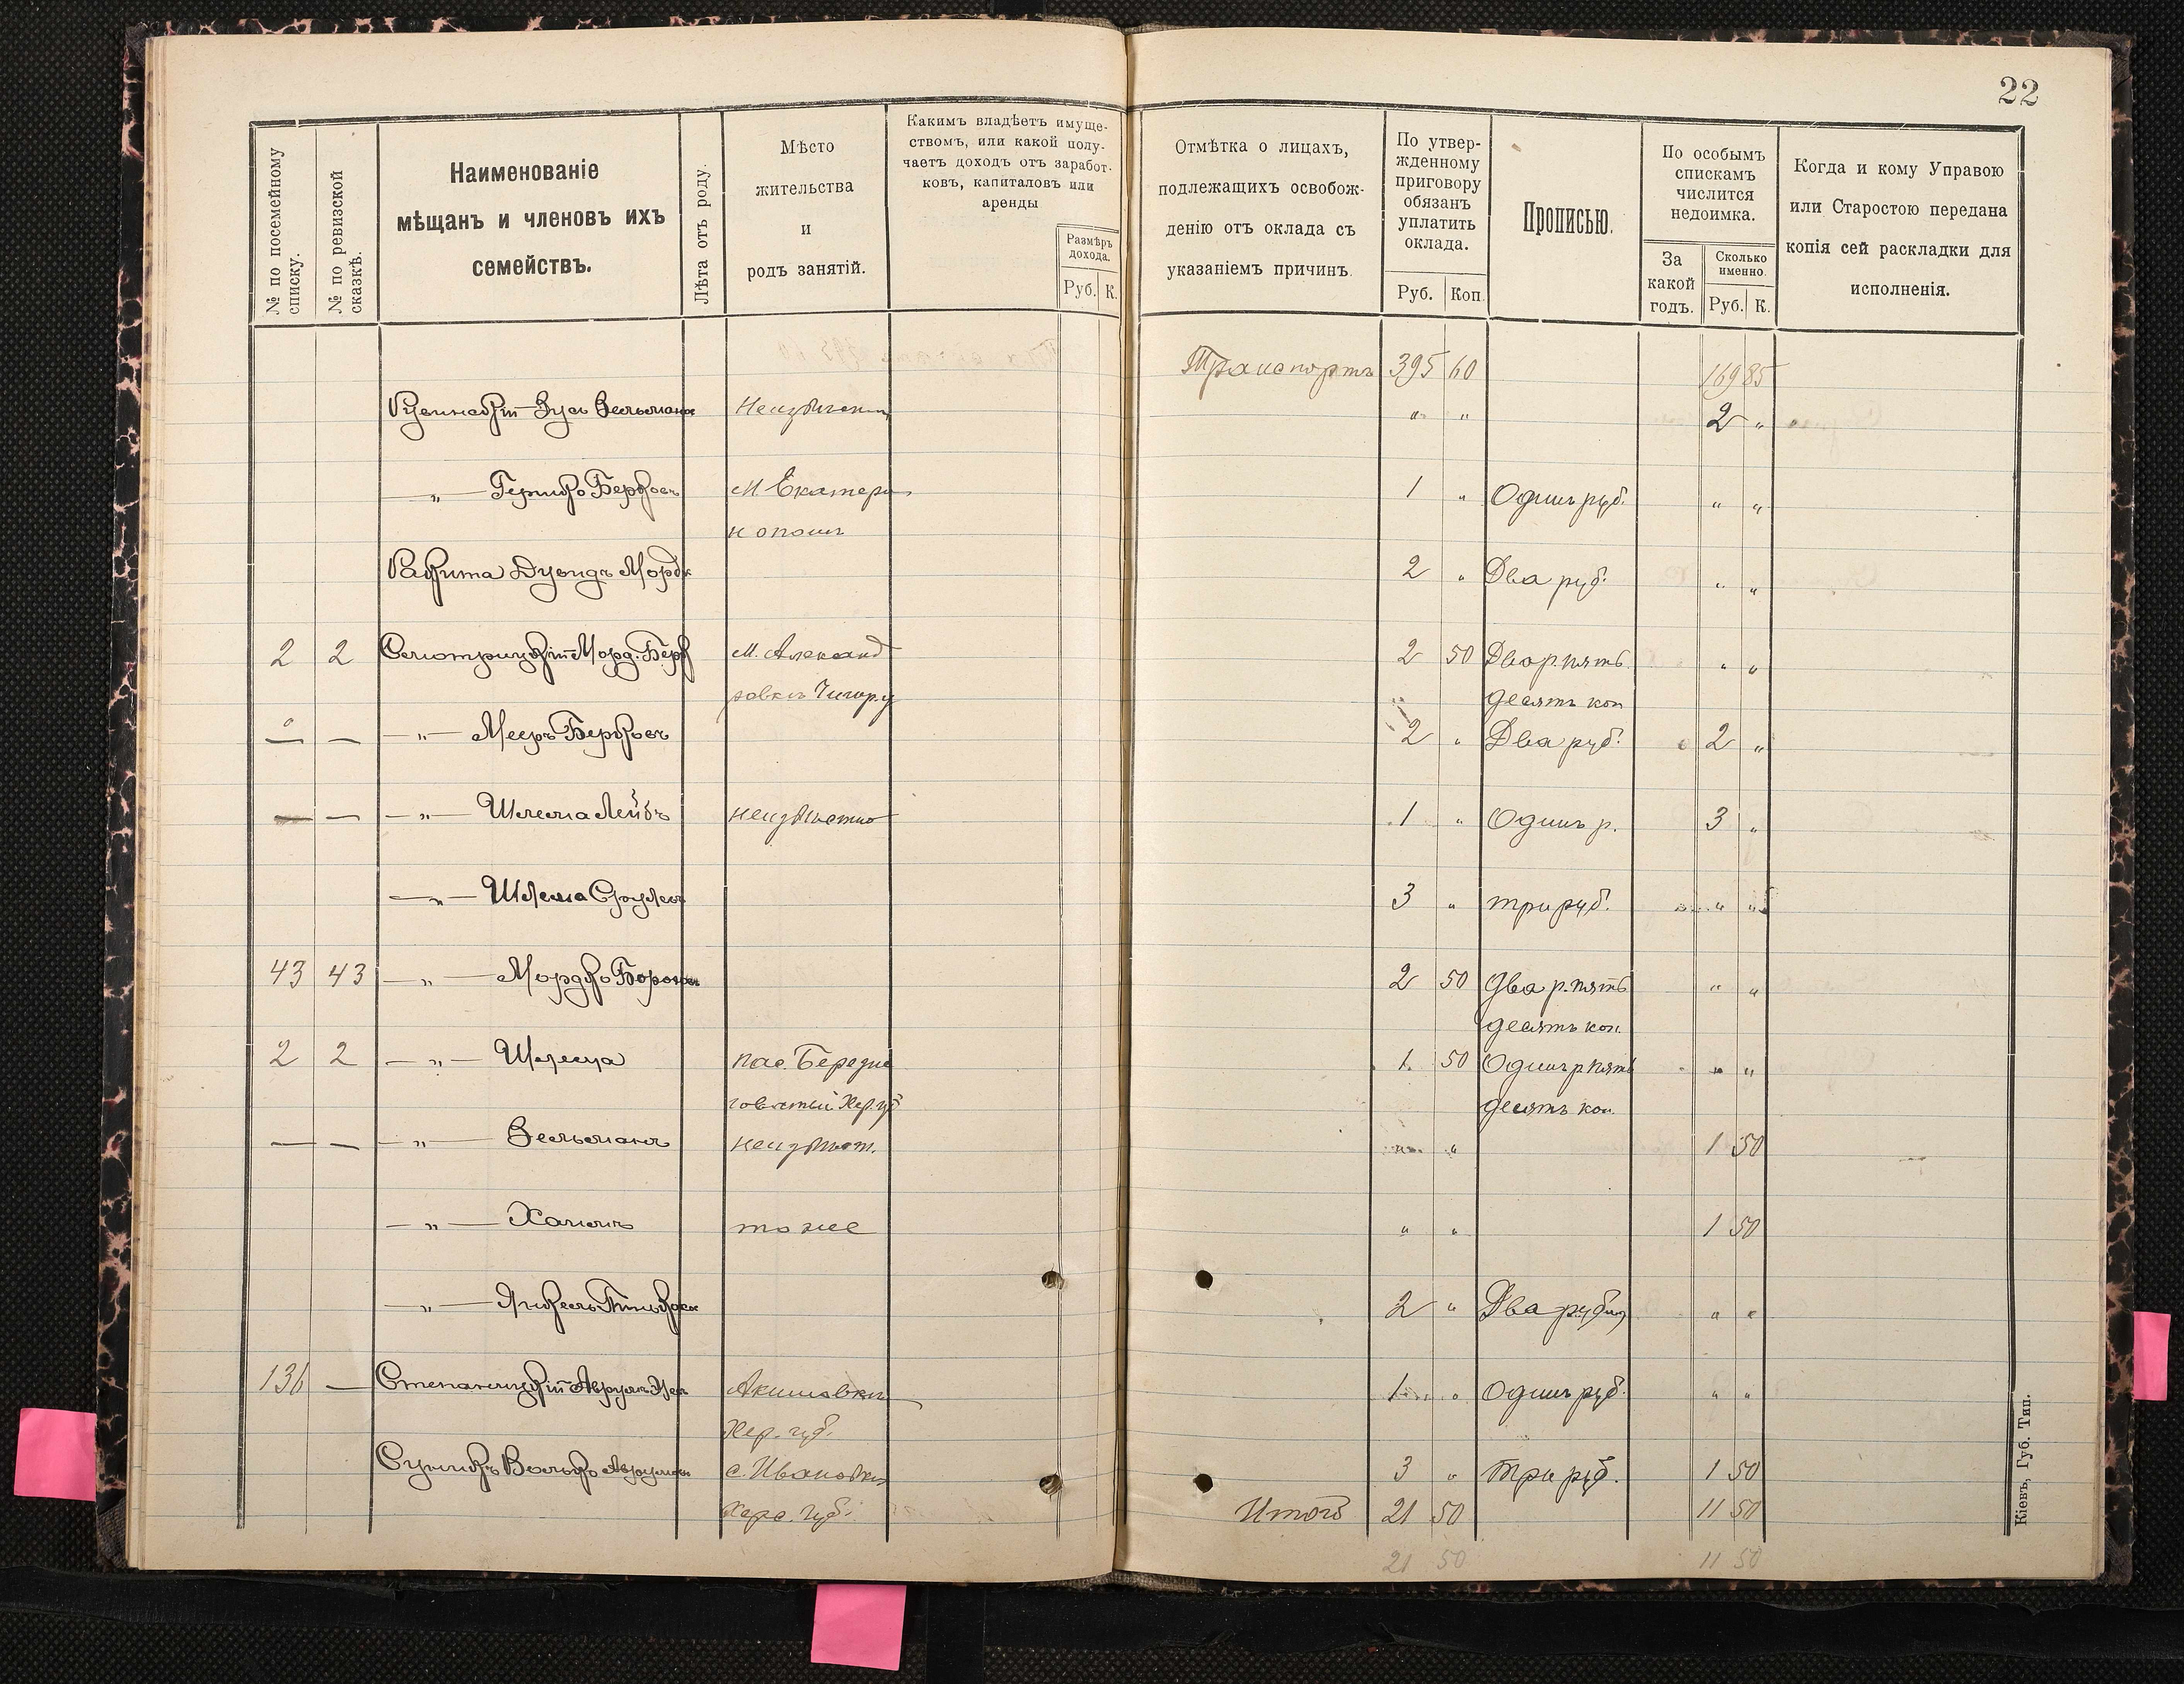 22
№ по посемейному списку.
№ по ревизской сказкѣ.
Наименованіе
мѣщанъ и членовъ ихъ
семействъ.
Лѣта отъ роду.
Мѣсто
жительства
и
родъ занятій.
Какимъ владѣетъ имуще-
ствомъ, или какой полу-
чаетъ доходъ отъ заработ-
ковъ, капиталовъ или
аренды
Размѣръ
дохода.
Руб. К.
Отмѣтка о лицахъ,
подлежащихъ освобож-
денію отъ оклада съ
указаніемъ причинъ.
По утвер-
жденному
приговору
обязанъ
уплатить
оклада.
Руб. Коп.
Прописью.
По особымъ
спискамъ
числится
недоимка.
За
какой
годъ.
Сколько
именно.
Руб. К.
Когда и кому Управою
или Старостою передана
копія сей раскладки для
исполненія.
Транспортъ 395 60 169 85
Зусь " " 2 "
" Гершко Берковъ М. Екатери 1 " Одинъ руб. " "
нополь
Ракита Дувидъ Морд 2 " Два руб. " "
2 2 Морд. Берк М. Александ 2 50 Два р. пять " "
ровкъ Чигир. у десять коп
— — — " — Мееръ Берковъ 2 " Два руб. 2 "
— — — " — Шлема Лейбъ неизвѣстно 1 " Одинъ р. 3 "
— " — Шлема Срулев 3 " три руб. " "
43 43 — " — Мордко Борохов 2 50 Два р. пять " "
десять коп.
2 2 — " — пос. Березне 1 50 Один р пять " "
говатый Хер. гу десять коп.
— — — " — Зельманъ неизвѣст. " " 1 50
— " — Хаимъ тоже " " 1 50
— " — Янкель 2 " Два рубля " "
136 — Степанецкій Аврумъ 1 " Один руб. " "
Хер. губ.
Волько Аврумовъ с. Ивановка 3 " Три руб. 1 50
Херс. губ. Итого 21 50 11 50
21 50 11 50
Кіевъ, Губ. Тип.